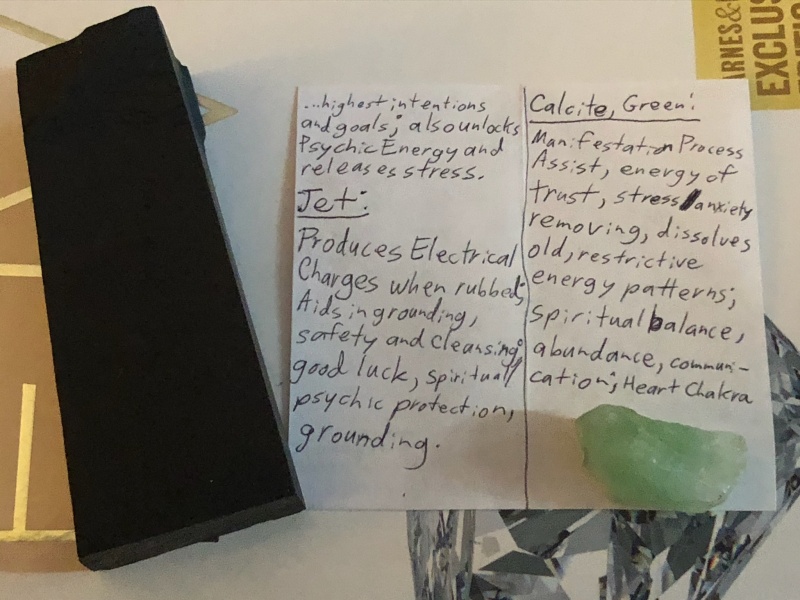 ...highest intentions
and goals; also unlocks
Psychic Energy and
releases stress.
Jet:
Produces Electrical
Charges when rubbed;
Aids in grounding,
safety and cleansing;
good luck, spiritual/
psychic protection,
grounding.
Calcite, Green:
Manifestation Process
Assist, energy of
trust, stress/anxiety
removing, dissolves
old, restrictive
energy patterns;
spiritual balance,
abundance, communi-
cation; Heart Chakra
ARNES&
EXCLUS